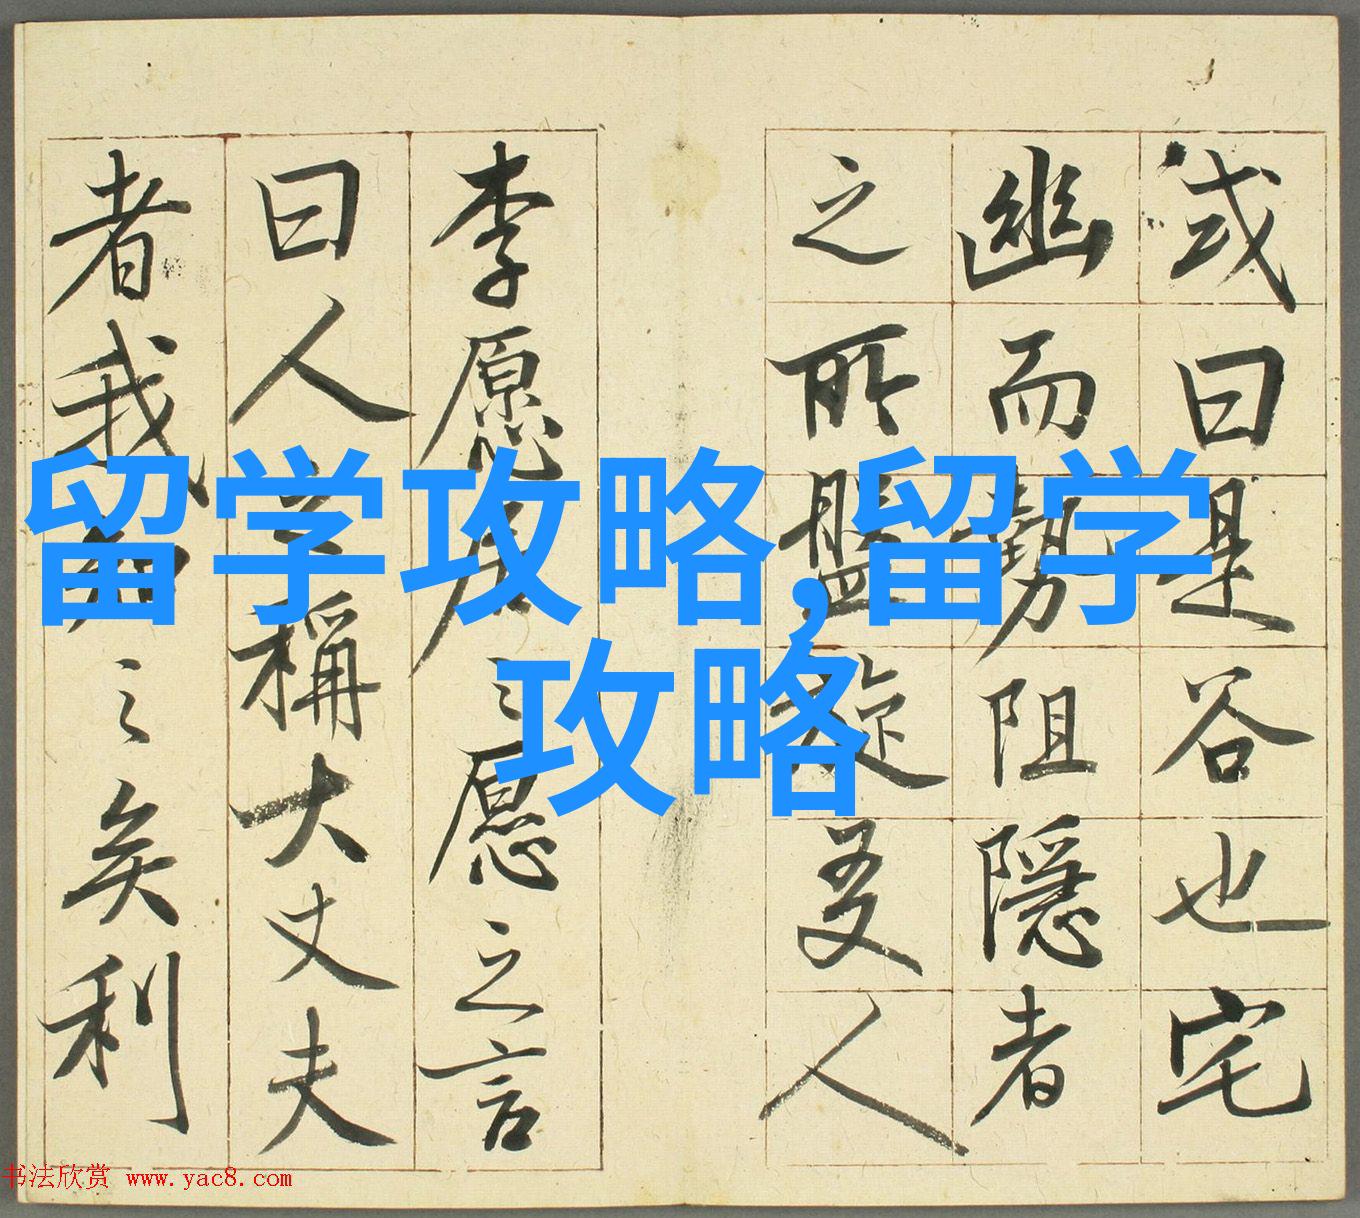 或曰是谷也宅
幽而勢阻隱者
之所盤旋友人
李愿居之愿之言
曰人之稱大丈夫
者我知之矣利
留学攻略,留学
攻略
书法欣赏 www.yac8.com